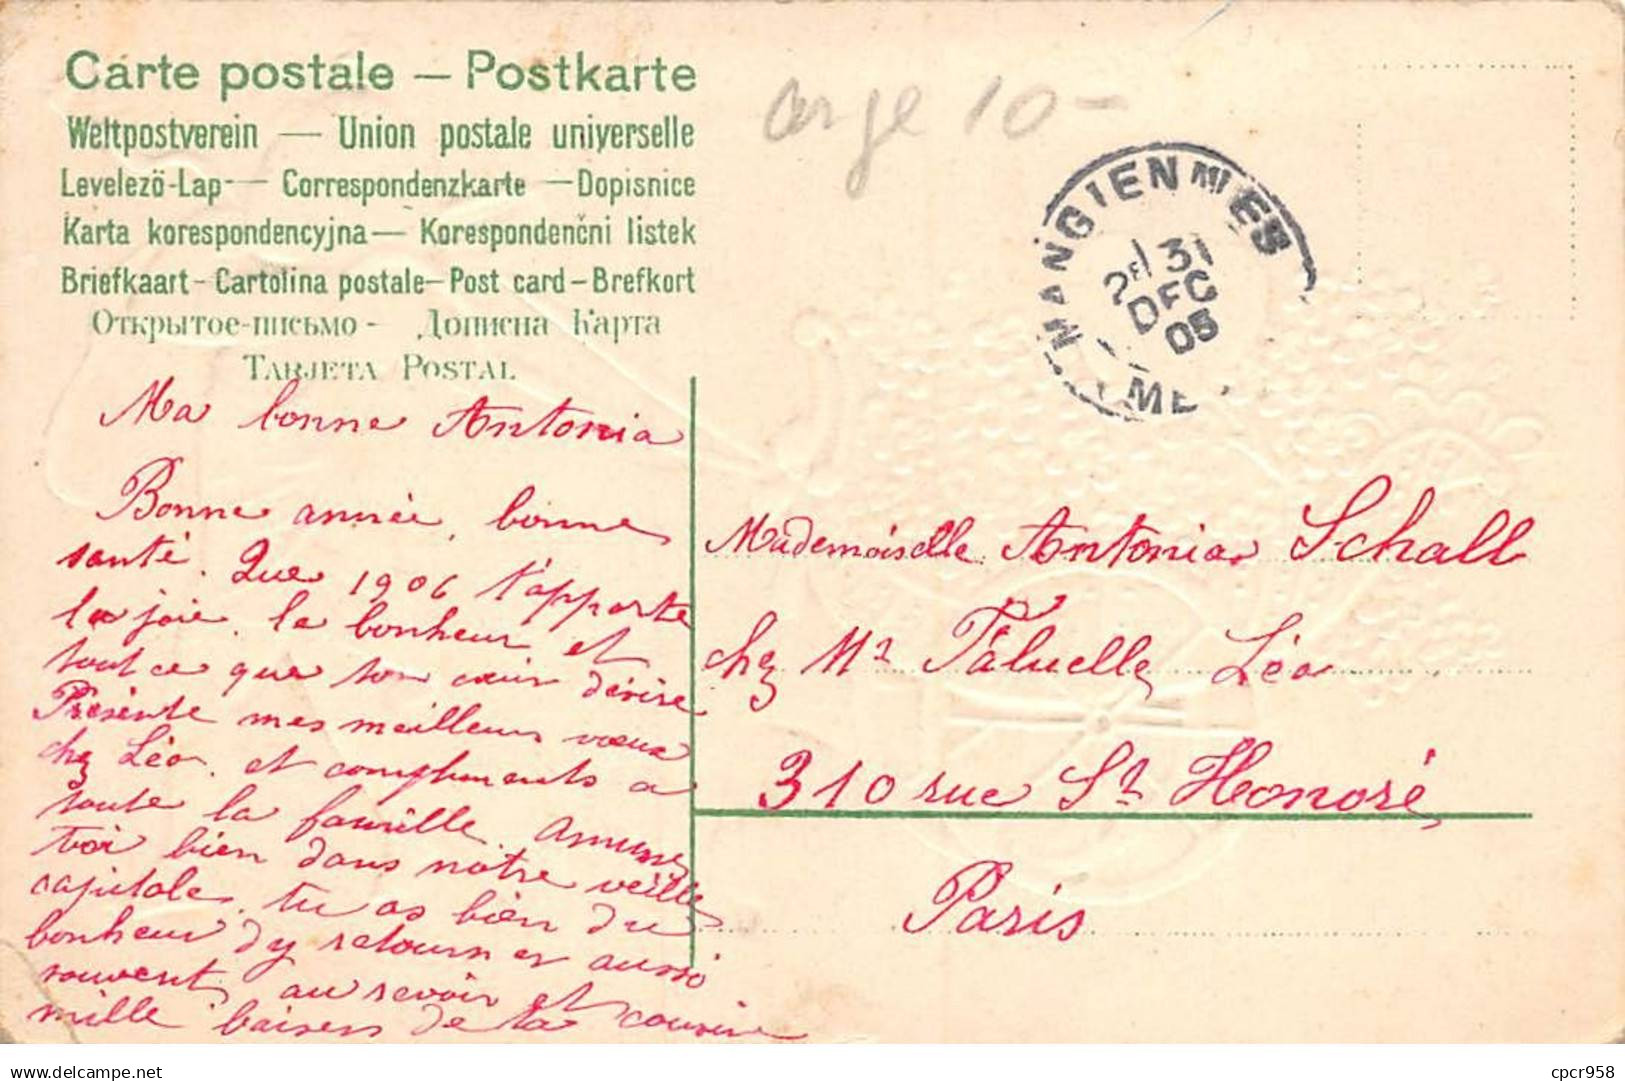 Carte postale — Postkarte
Weltpostverein — Union postale universelle
Levelezö-Lap — Correspondenzkarte — Dopisnice
Karta korespondencyjna — Korespondenčni listek
Briefkaart - Cartolina postale - Post card - Brefkort
Открытое-письмо - Дописна Карта
TARJETA POSTAL
10-
MANGIENNES
2E 31
DEC
05
Ma bonne Antonia
Bonne année, bonne
santé. Que 1906 t'apporte
la joie, le bonheur et
tout ce que ton cœur désire
Présente mes meilleurs vœux
chez Léo. et compliments a
toute la famille. Amuse
toi bien dans notre veille
capitale, tu as bien du
bonheur d'y retourner aussi
souvent, au revoir et
mille baisers de ta cousine
Mademoiselle Antonia Schall
chez Mr Faluelle Léo
310 rue St Honoré
Paris
cpcr958